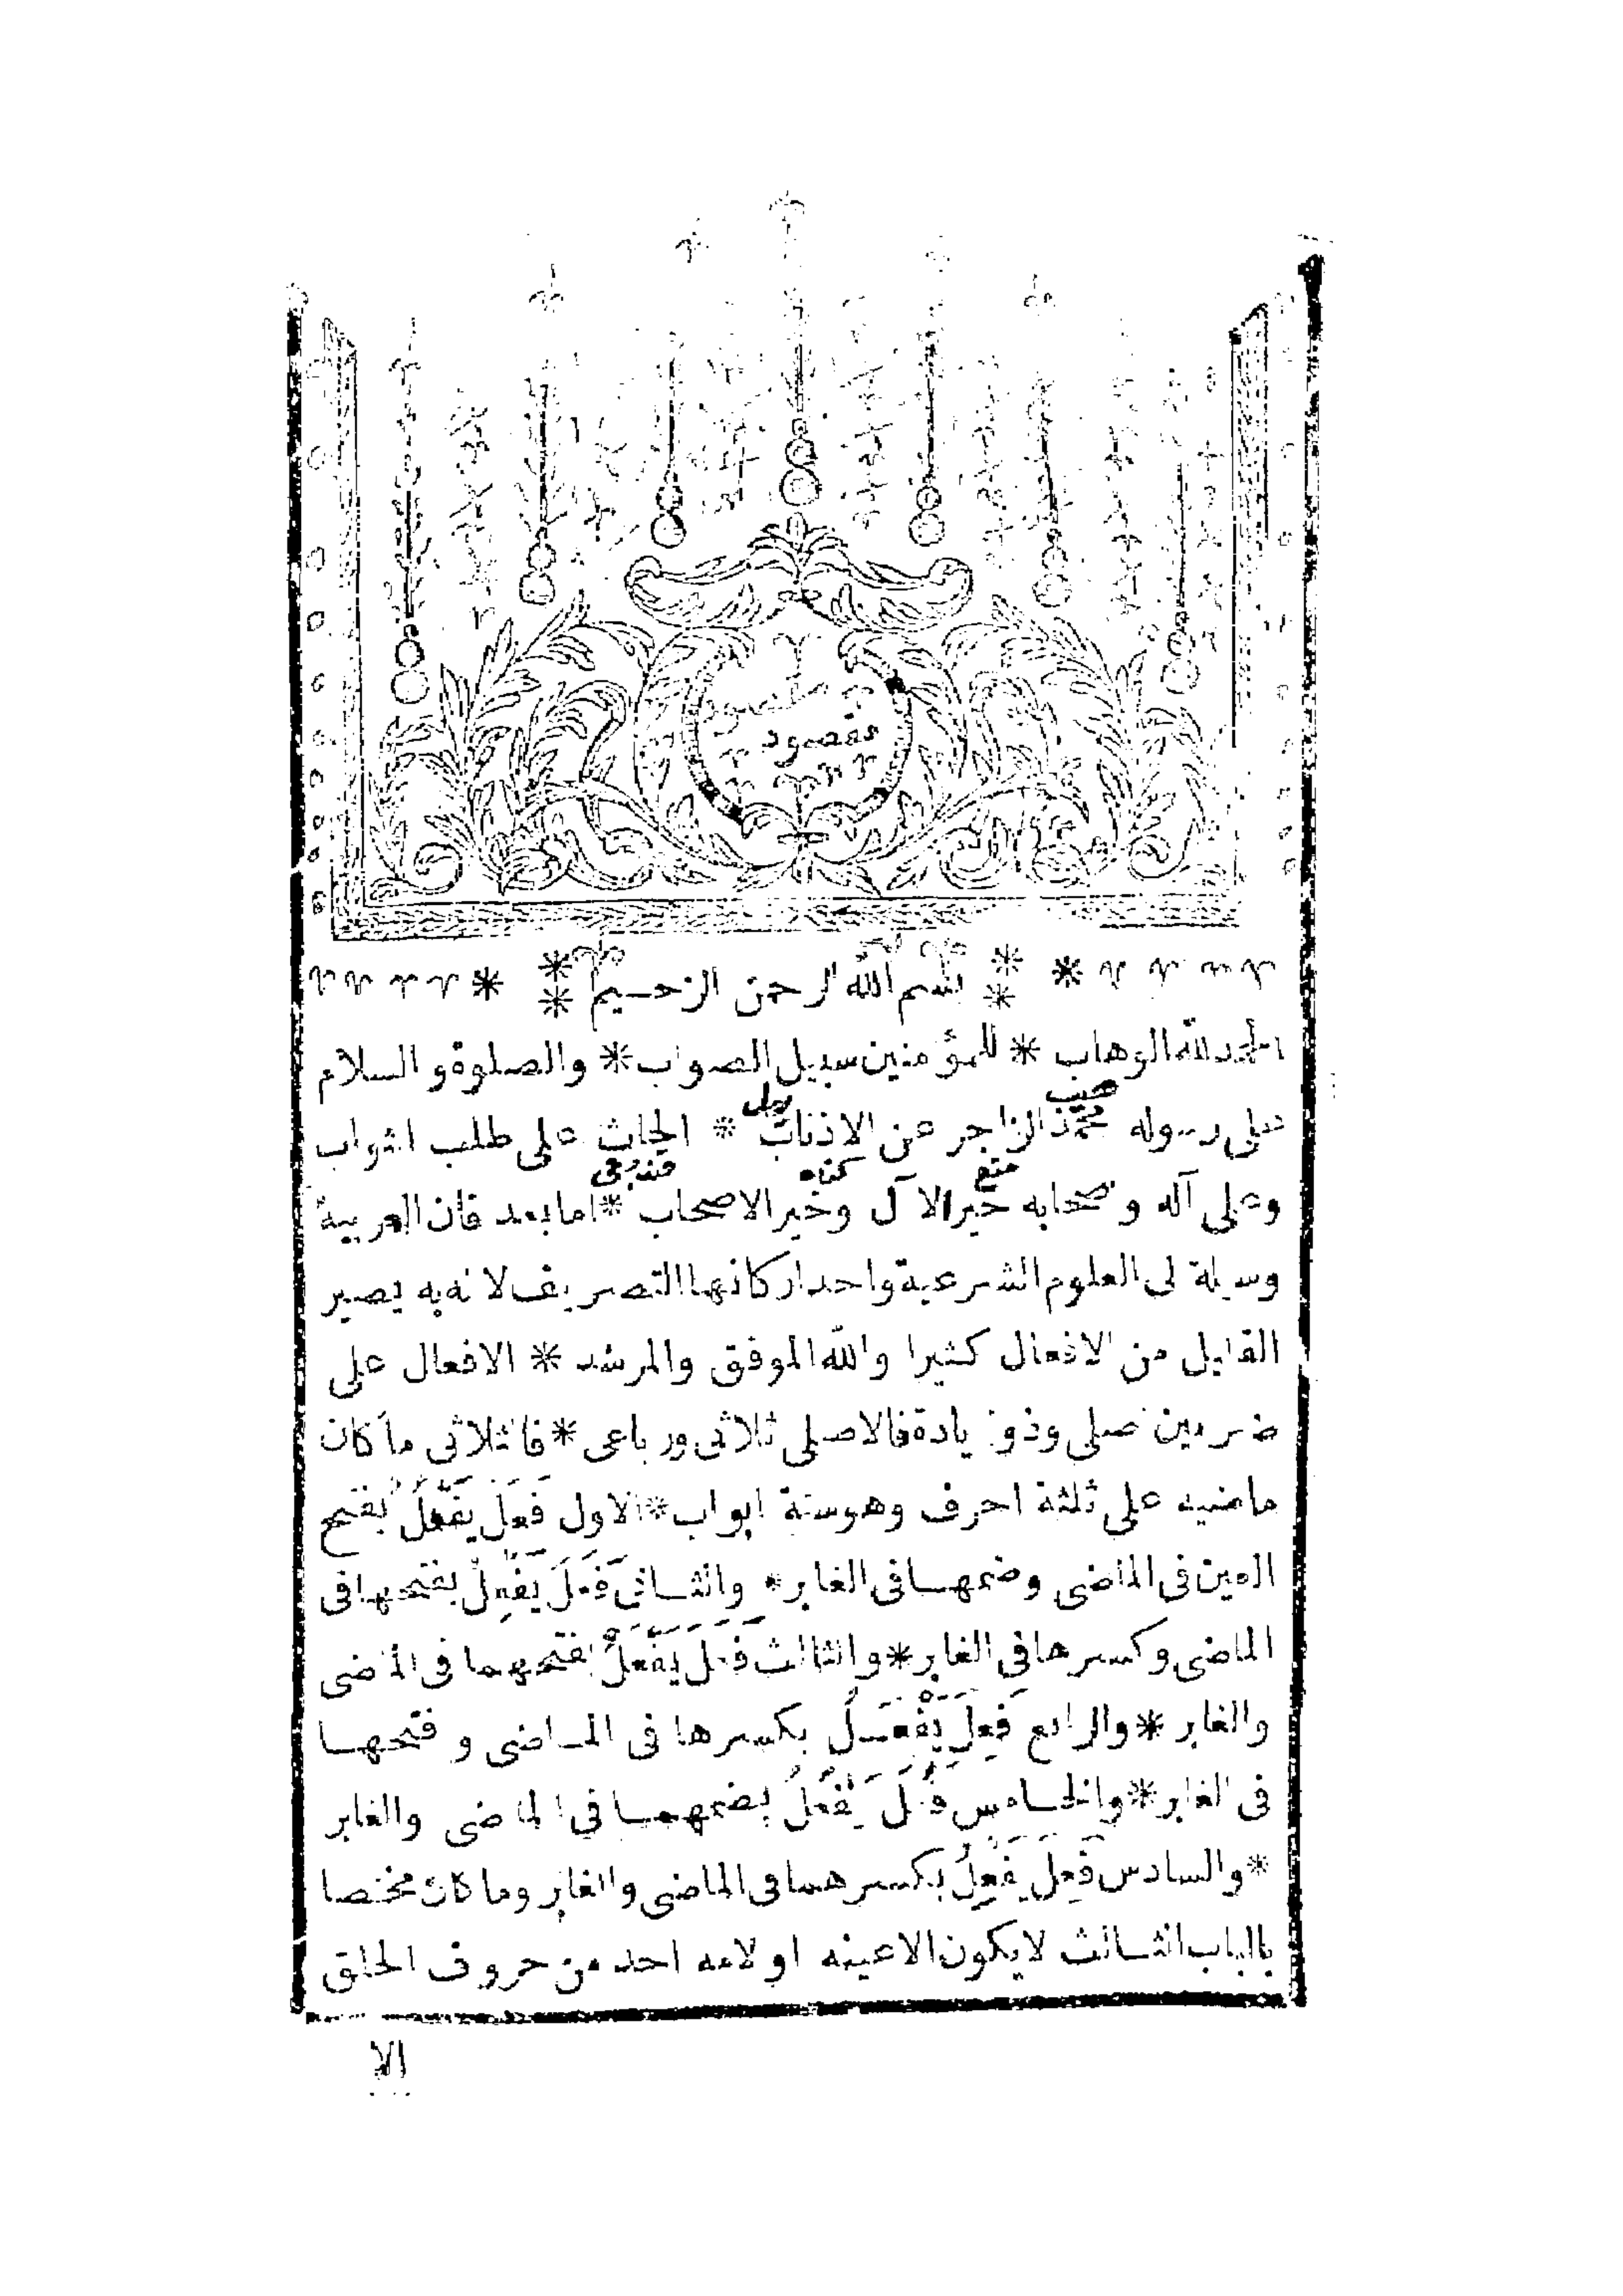 مقصود
بسم الله الرحمن الرحيم
الحمد لله الوهاب * للمؤمنين سبيل الصواب * والصلوة والسلام
على رسوله محمد الزاجر عن الاذناب * الحاث على طلب الثواب
وعلى آله وصحابه خير الآل وخير الاصحاب * اما بعد فان العربية
وسيلة الى العلوم الشرعية واحد اركانها التصريف لانه به يصير
القليل من الافعال كثيرا والله الموفق والمرشد * الافعال على
ضربين اصلى وذو زيادة فالاصلى ثلاثى ورباعى * فالثلاثى ما كان
ماضيه على ثلثة احرف وهو ستة ابواب * الاول فَعَلَ يَفْعُلُ بفتح
العين فى الماضى وضمهـا فى الغابر * والثـانى فَعَلَ يَفْعِلُ بفتحهـا فى
الماضى وكسرها فى الغابر * والثالث فَعَلَ يَفْعَلُ بفتحهما فى الماضى
والغابر * والرابع فَعِلَ يَفْعَـلُ بكسرها فى المـاضى و فتحهـا
فى الغابر * والخـامس فَعُلَ يَفْعُلُ بضمهمـا فى الماضى والغابر
* والسادس فَعِلَ يَفْعِلُ بكسرهما فى الماضى والغابر وما كان مختصا
بالباب الثـالث لا يكون الا عينه او لامه احد من حروف الحلق
الا